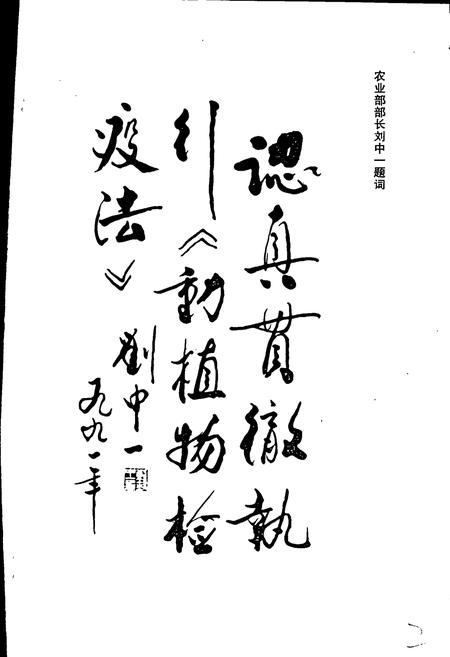 农业部部长刘中一题词
認真贯徹執
行《動植物检
疫法》
劉中一
九九一年